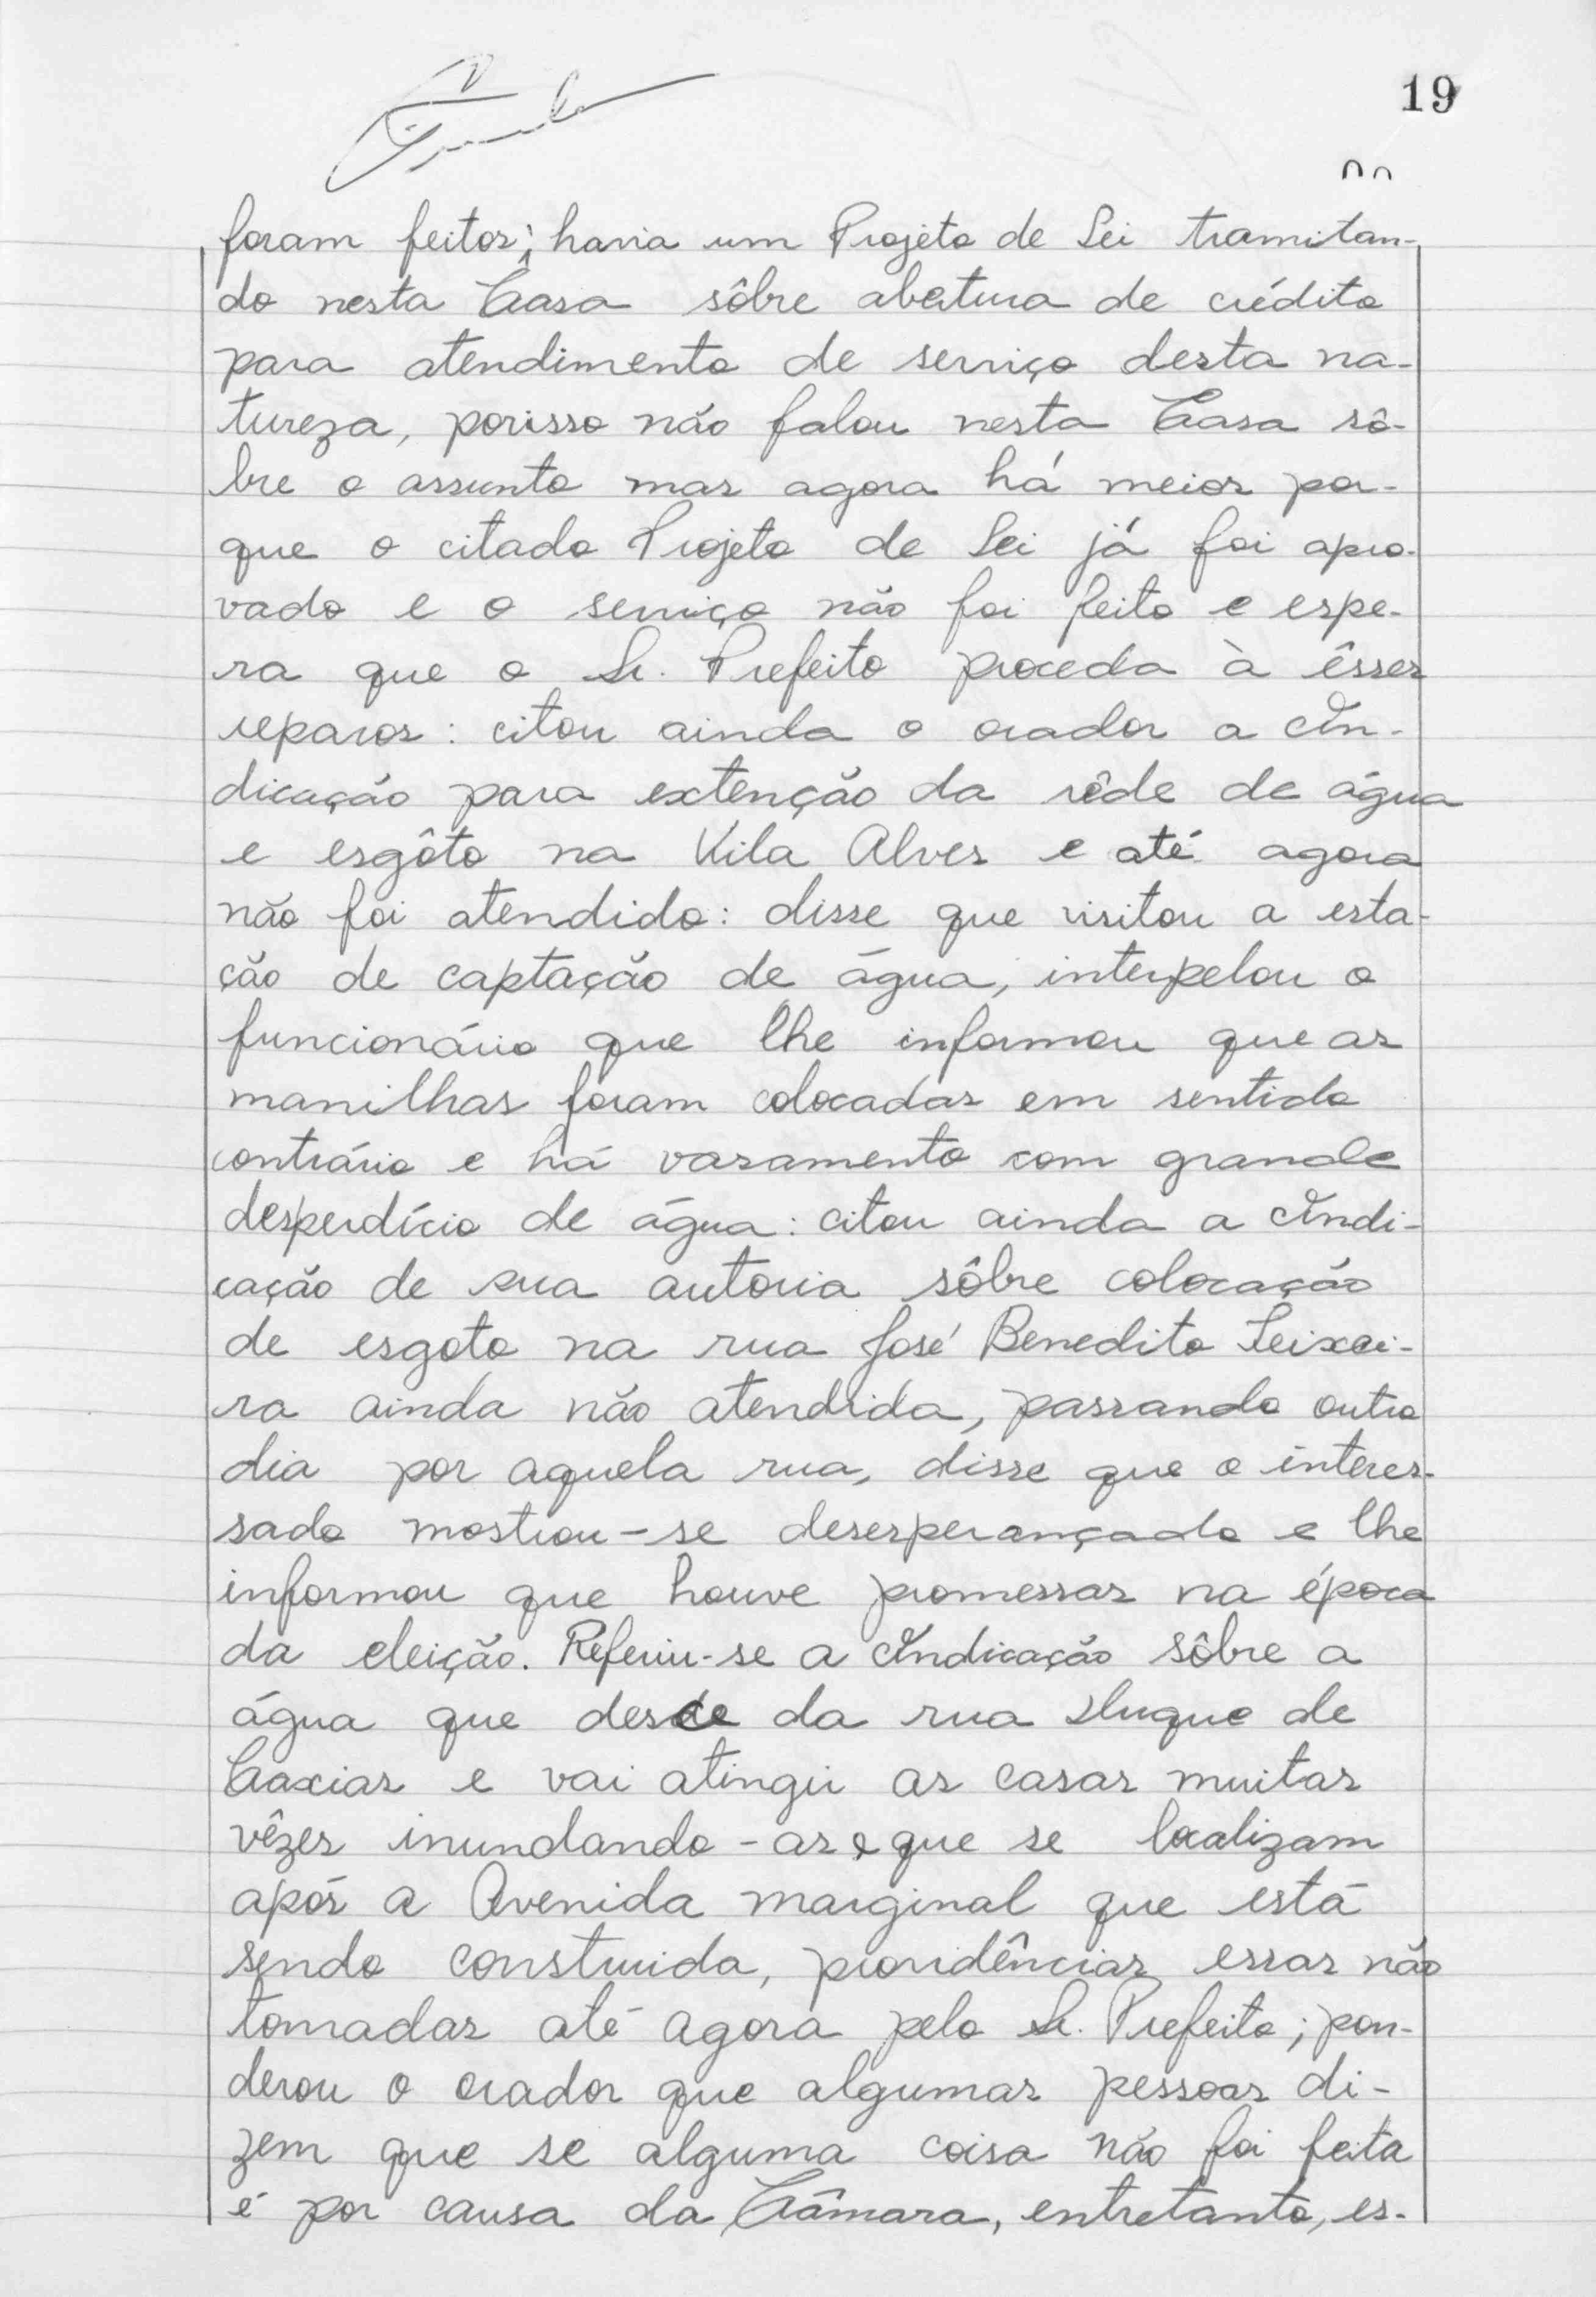 19
foram feitos; havia um Projeto de Lei tramitan-
do nesta Casa sôbre abertura de crédito
para atendimento de serviço desta na-
tureza, porisso não falou nesta Casa sô-
bre o assunto mas agora há meios por-
que o citado Projeto de Lei já foi apro-
vado e o serviço não foi feito e espe-
ra que o Sr. Prefeito proceda à êsses
reparos: citou ainda o orador a In-
dicação para extenção da rêde de água
e esgôto na Vila Alves e até agora
não foi atendido: disse que visitou a esta-
ção de captação de água, interpelou o
funcionário que lhe informou que as
manilhas foram colocadas em sentido
contrário e há vasamento com grande
desperdício de água: citou ainda a Indi-
cação de sua autoria sôbre colocação
de esgoto na rua José Benedito Teixei-
ra ainda não atendida, passando outro
dia por aquela rua, disse que o interes-
sado mostrou-se desesperançado e lhe
informou que houve promessas na época
da eleição. Referiu-se a Indicação sôbre a
água que desce da rua Duque de
Caxias e vai atingir as casas muitas
vêzes inundando-as e que se localizam
após a Avenida marginal que está
sendo construida, providências essas não
tomadas até agora pelo Sr. Prefeito; pon-
derou o orador que algumas pessoas di-
zem que se alguma coisa não foi feita
é por causa da Câmara, entretanto, es-